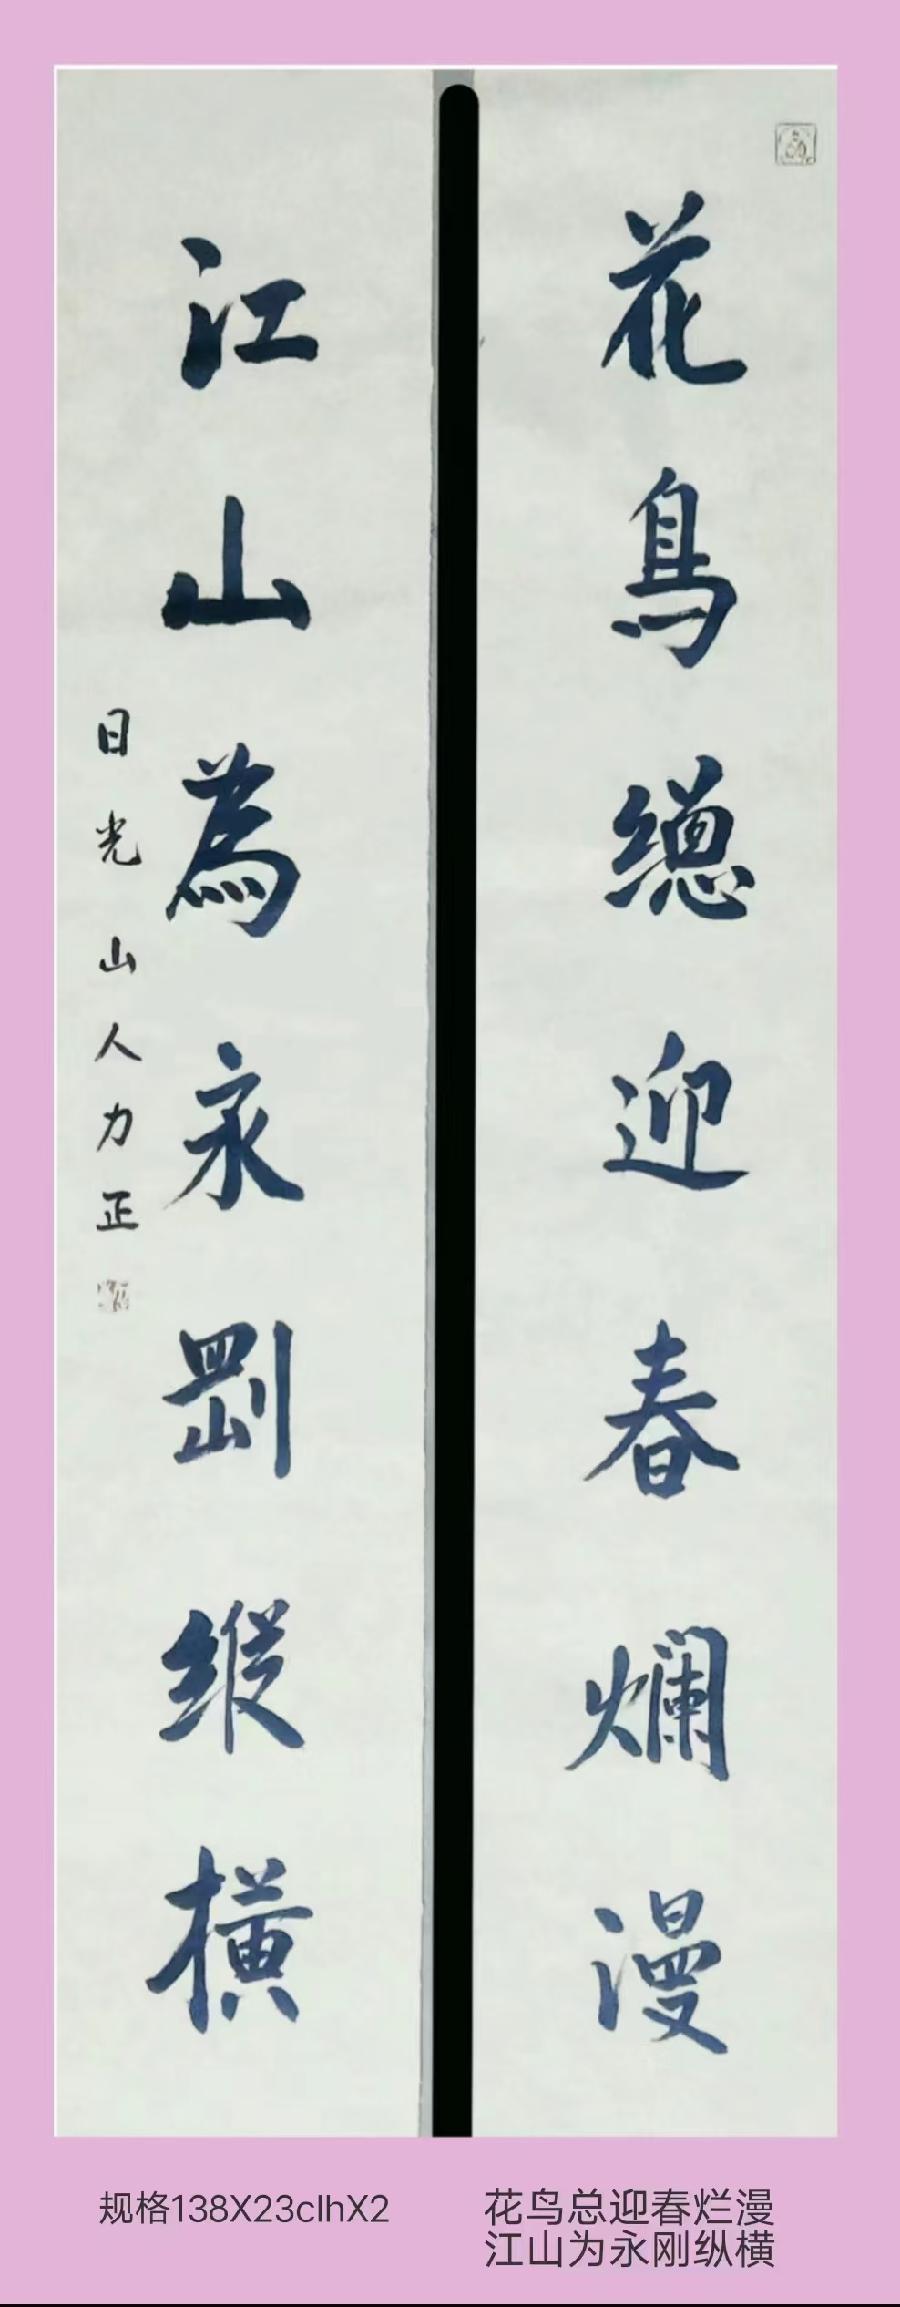 花鳥總迎春爛漫
江山為永剛縱橫
日光山人力正
规格138X23clhX2
花鸟总迎春烂漫
江山为永刚纵横